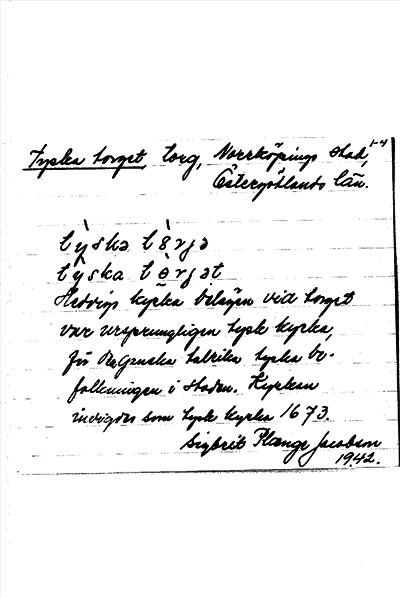 Tyska torget, torg, Norrköpings stad,
Östergötlands län.
tỳska tò̤rjə
tỳska tò̤rjət
Hedvigs kyrka belägen vid torget
var ursprungligen tysk kyrka,
för den talrika tyska be-
folkningen i staden. Kyrkan
invigdes som tysk kyrka 1673.
Sigbrit Plænge Jacobson
1942.